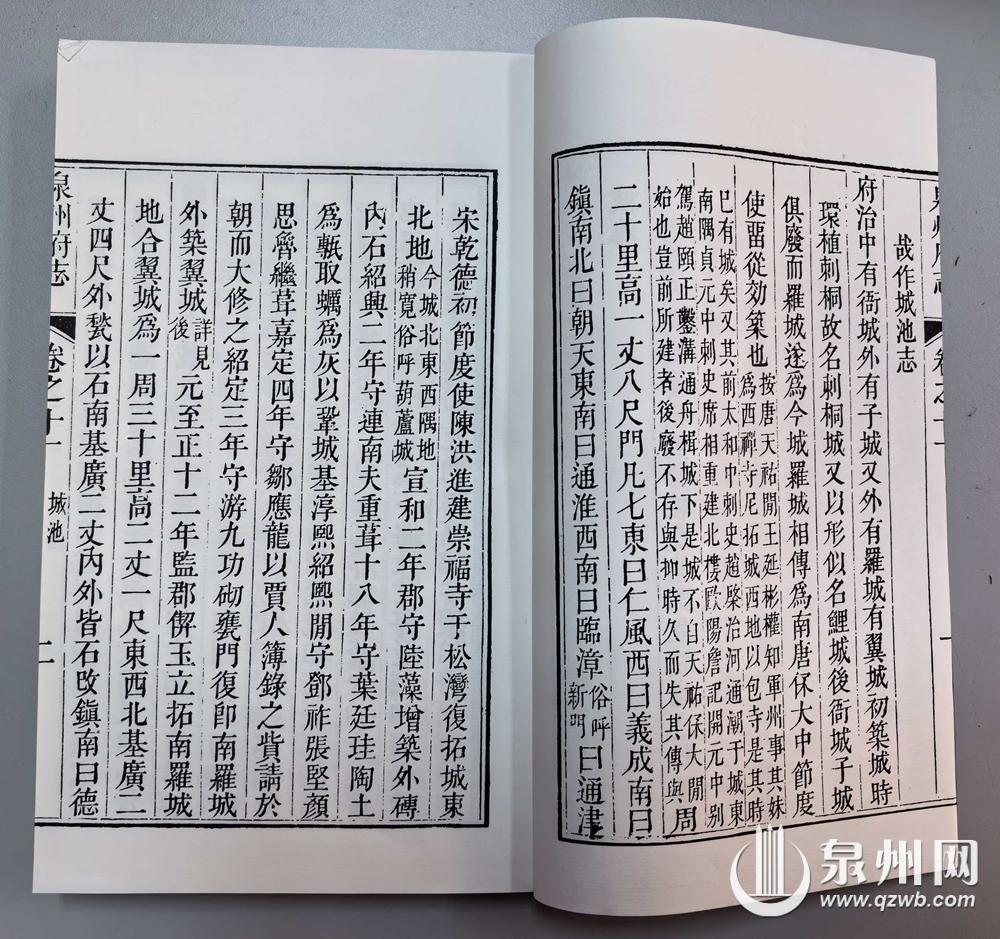 哉作城池志
府治中有衙城外有子城又外有羅城有翼城初築城時
環植刺桐故名刺桐城又以形似名鯉城後衙城子城
俱廢而羅城遂爲今城羅城相傳爲南唐保大中節度
使畱從効築也按唐天祐閒王延彬權知軍州事其妹
爲西禪寺尼拓城西地以包寺是其時
已有城矣又其前太和中刺史趙棨治河通潮于城東
南隅貞元中刺史席相重建北樓歐陽詹記開元中別
駕趙頤正鑿溝通舟楫城下是城不自天祐保大閒
始也豈前所建者後廢不存與抑時久而失其傳與周
二十里高一丈八尺門凡七東曰仁風西曰義成南曰
鎮南北曰朝天東南曰通淮西南曰臨漳俗呼新門曰通津
宋乾德初節度使陳洪進建崇福寺于松灣復拓城東
北地今城北東西隅地稍寛俗呼葫蘆城宣和二年郡守陸藻增築外磚
內石紹興二年守連南夫重葺十八年守葉廷珪陶土
爲甎取蠣爲灰以鞏城基淳熙紹熙閒守鄧祚張堅顏
思魯繼葺嘉定四年守鄒應龍以賈人簿錄之貲請於
朝而大修之紹定三年守游九功砌甕門復卽南羅城
外築翼城詳見後元至正十二年監郡偰玉立拓南羅城
地合翼城爲一周三十里高二丈一尺東西北基廣二
丈四尺外甃以石南基廣二丈內外皆石攺鎮南曰德
泉州府志
卷之十一
城池
二
泉州网
www.qzwb.com